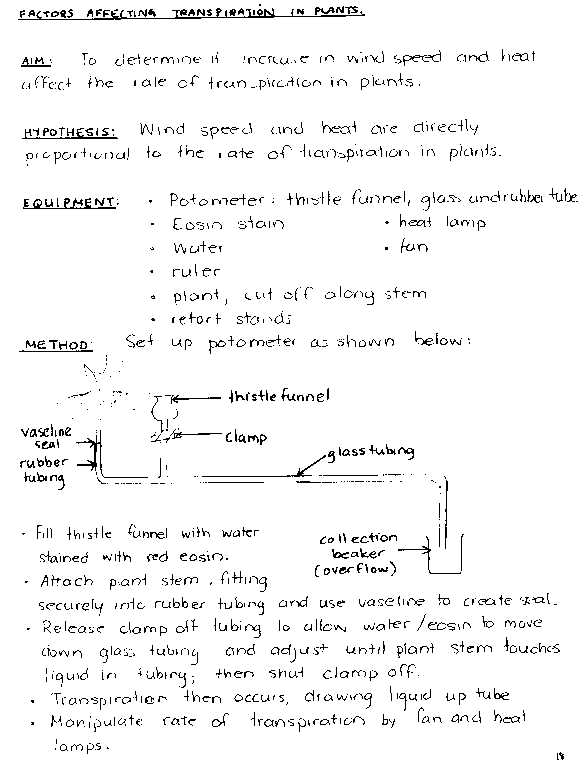 FACTORS AFFECTING TRANSPIRATION IN PLANTS.
AIM: To determine if increase in wind speed and heat
affect the rate of transpiration in plants.
HYPOTHESIS: Wind speed and heat are directly
proportional to the rate of transpiration in plants.
EQUIPMENT: • Potometer: thistle funnel, glass and rubber tube
• Eosin stain • heat lamp
• Water • fan
• ruler
• plant, cut off along stem
• retort stands
METHOD: Set up potometer as shown below:
thistle funnel
vaseline
seal
clamp
rubber
tubing
glass tubing
• Fill thistle funnel with water
stained with red eosin.
collection
beaker
(overflow)
• Attach plant stem, fitting
securely into rubber tubing and use vaseline to create seal.
• Release clamp off tubing to allow water/eosin to move
down glass tubing and adjust until plant stem touches
liquid in tubing; then shut clamp off.
• Transpiration then occurs, drawing liquid up tube
• Manipulate rate of transpiration by fan and heat
lamps.